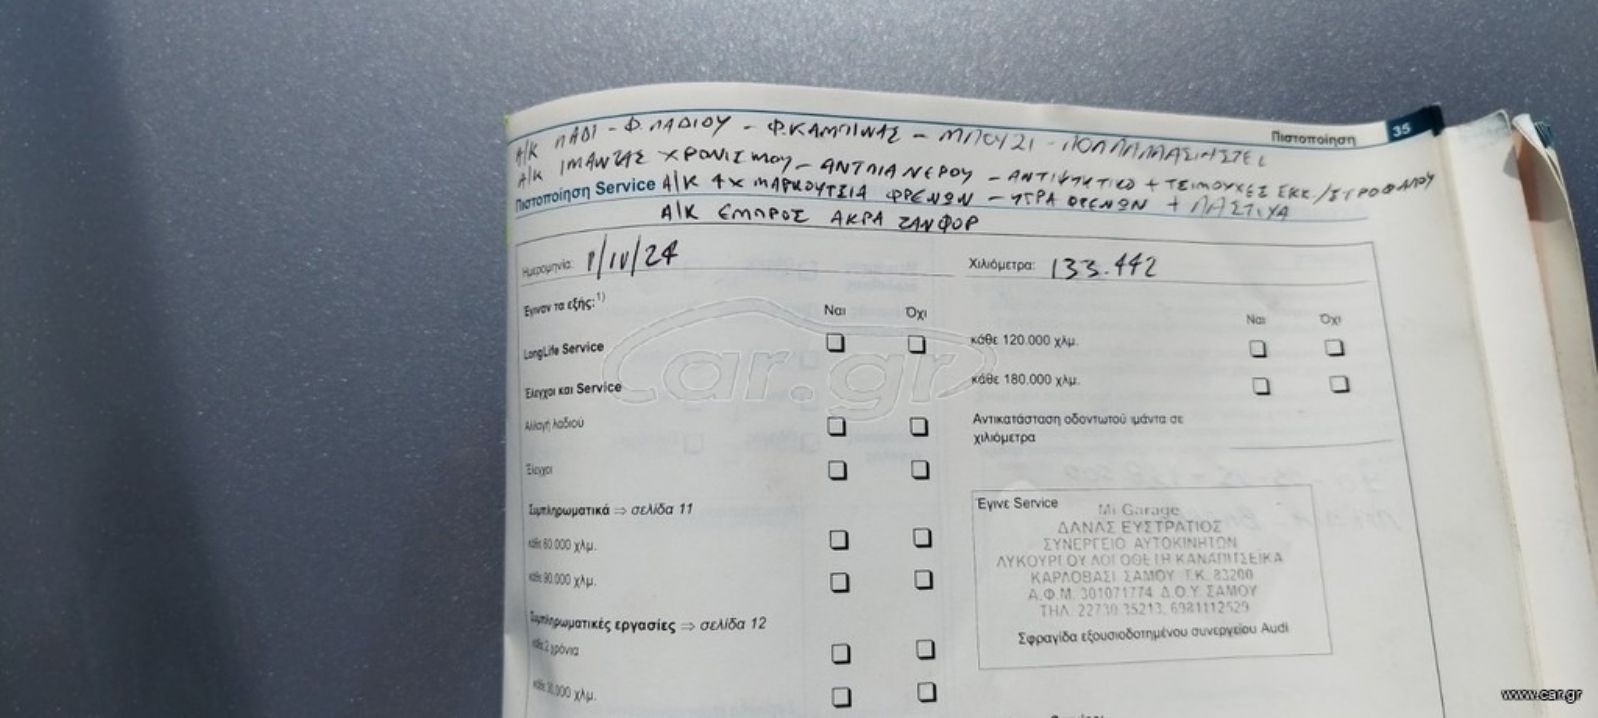 Πιστοποίηση 35
Α/Κ ΛΑΔΙ - Φ.ΛΑΔΙΟΥ - Φ.ΚΑΜΠΙΝΑΣ - ΜΠΟΥΖΙ -
Α/Κ ΙΜΑΝΤΑΣ ΧΡΟΝΙΣΜΟΥ - ΑΝΤΛΙΑ ΝΕΡΟΥ - ΑΝΤΙΨΥΚΤΙΚΟ + ΤΣΙΜΟΥΧΕΣ ΕΚΚ./ΣΤΡΟΦΑΛΟΥ
Πιστοποίηση Service Α/Κ 4Χ ΜΑΡΚΟΥΤΣΙΑ ΦΡΕΝΩΝ - ΥΓΡΑ ΦΡΕΝΩΝ + ΛΑΣΤΙΧΑ
Α/Κ ΕΜΠΡΟΣ ΑΚΡΑ ΖΑΝΦΟΡ
Ημερομηνία: 1/IV/24 Χιλιόμετρα: 133.442
Έγιναν τα εξής:1) Ναι Όχι Ναι Όχι
LongLife Service κάθε 120.000 χλμ.
Έλεγχοι και Service κάθε 180.000 χλμ.
Αλλαγή λαδιού Αντικατάσταση οδοντωτού ιμάντα σε
χιλιόμετρα
Έλεγχοι
Συμπληρωματικά ⇒ σελίδα 11
κάθε 60.000 χλμ.
κάθε 90.000 χλμ.
Συμπληρωματικές εργασίες ⇒ σελίδα 12
κάθε 2 χρόνια
κάθε 30.000 χλμ.
Έγινε Service
Mi Garage
ΔΑΝΑΣ ΕΥΣΤΡΑΤΙΟΣ
ΣΥΝΕΡΓΕΙΟ ΑΥΤΟΚΙΝΗΤΩΝ
ΛΥΚΟΥΡΓΟΥ ΛΟΓΟΘΕΤΗ ΚΑΝΑΠΙΤΣΕΪΚΑ
ΚΑΡΛΟΒΑΣΙ ΣΑΜΟΥ Τ.Κ. 83200
Α.Φ.Μ. 301071774 Δ.Ο.Υ. ΣΑΜΟΥ
ΤΗΛ. 22730 35213, 6981112529
Σφραγίδα εξουσιοδοτημένου συνεργείου Audi
car.gr
www.car.gr